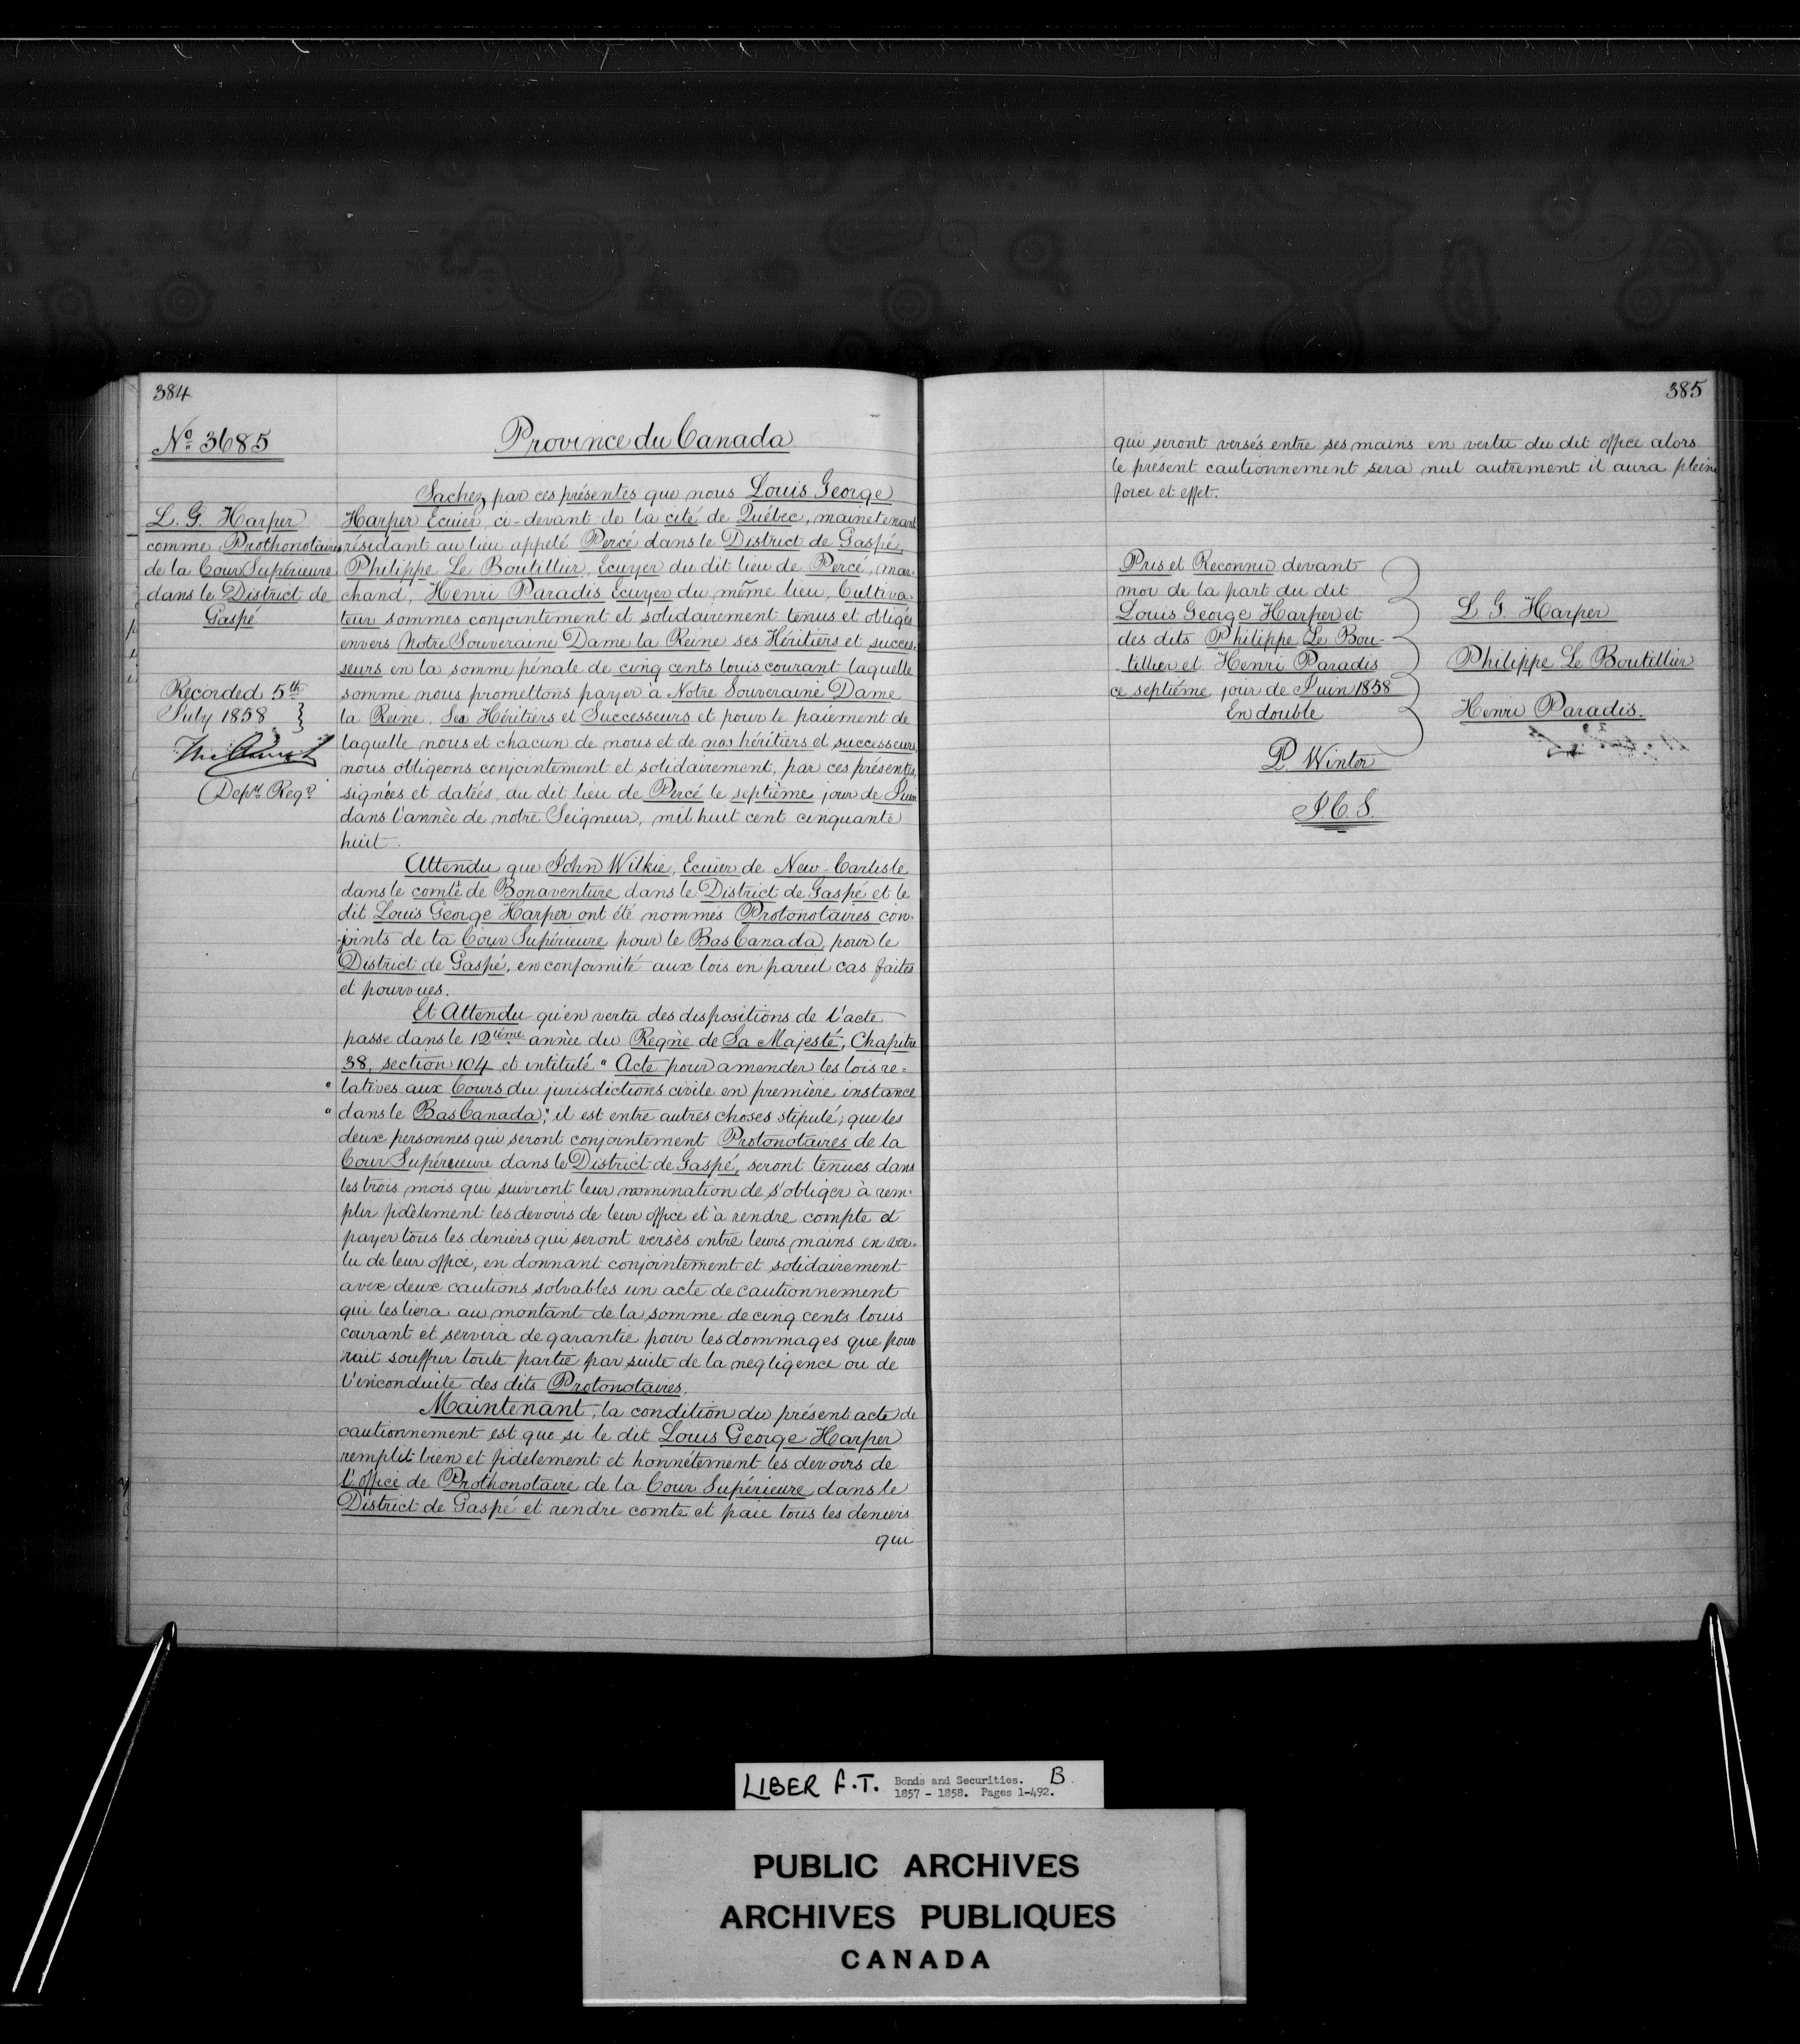 384
No 3685
Province du Canada
L. G. Harper
comme Prothonotaire
de la Cour Supérieure
dans le District de
Gaspé
Recorded 5th
July 1858
Depy Regr
Sachez par ces présentes que nous Louis George
Harper Ecuier, ci-devant de la cité de Québec, mainetenant
résidant au lieu appelé Percé dans le District de Gaspé,
Philippe Le Boutillier, Ecuyer du dit lieu de Percé, mar-
chand, Henri Paradis Ecuyer du même lieu, Cultiva-
teur sommes conjointement et solidairement tenus et obligés
envers Notre Souveraine Dame la Reine ses Héritiers et succes-
seurs en la somme pénale de cinq cents louis courant laquelle
somme nous promettons payer à Notre Souveraine Dame
la Reine, Ses Héritiers et Successeurs et pour le paiement de
laquelle nous et chacun de nous et de nos héritiers et successeurs,
nous obligeons conjointement et solidairement, par ces présentes,
signées et datées, du dit lieu de Percé le septième jour de Juin
dans l'année de notre Seigneur, mil huit cent cinquante
huit.
Attendu que John Wilkie, Ecuier de New-Carlisle
dans le comté de Bonaventure dans le District de Gaspé et le
dit Louis George Harper ont été nommés Protonotaires con-
joints de la Cour Supérieure pour le Bas Canada, pour le
District de Gaspé, en conformité aux lois en pareil cas faites
et pourvues.
Et Attendu qu'en vertu des dispositions de l'acte
passe dans le 12ième année du Regne de Sa Majesté, Chapitre
38, section 104 et intitulé "Acte pour amender les lois re-
"latives aux Cours du jurisdictions civile en première instance
"dans le Bas Canada," il est entre autres choses stipulé, que les
deux personnes qui seront conjointement Protonotaires de la
Cour Supérieure dans le District de Gaspé, seront tenues dans
les trois mois qui suivront leur nomination de s'obliger à rem-
plir fidèlement les devoirs de leur office et à rendre compte et
payer tous les deniers qui seront versés entre leurs mains en ver-
tu de leur office, en donnant conjointement et solidairement
avec deux cautions solvables un acte de cautionnement
qui les liera au montant de la somme de cinq cents louis
courant et servira de garantie pour les dommages que pour
rait souffrir toute partie par suite de la negligence ou de
l'inconduite des dits Protonotaires.
Maintenant, la condition du présent acte de
cautionnement est que si le dit Louis George Harper
remplit bien et fidelement et honnêtement les devoirs de
l'office de Prothonotaire de la Cour Supérieure dans le
District de Gaspé et rendre comte et paie tous les deniers
qui
385
qui seront versés entre ses mains en vertu du dit office alors
le présent cautionnement sera nul autrement il aura pleine
force et effet.
Pris et Reconnu devant
moi de la part du dit
Louis George Harper et
des dits Philippe Le Bou-
tillier et Henri Paradis
ce septième jour de Juin 1858
En double
P. Winter
J. C. S.
L G. Harper
Philippe Le Boutillier
Henri Paradis.
LIBER F.T. Bonds and Securities. B.
1857 - 1858. Pages 1-492.
PUBLIC ARCHIVES
ARCHIVES PUBLIQUES
CANADA